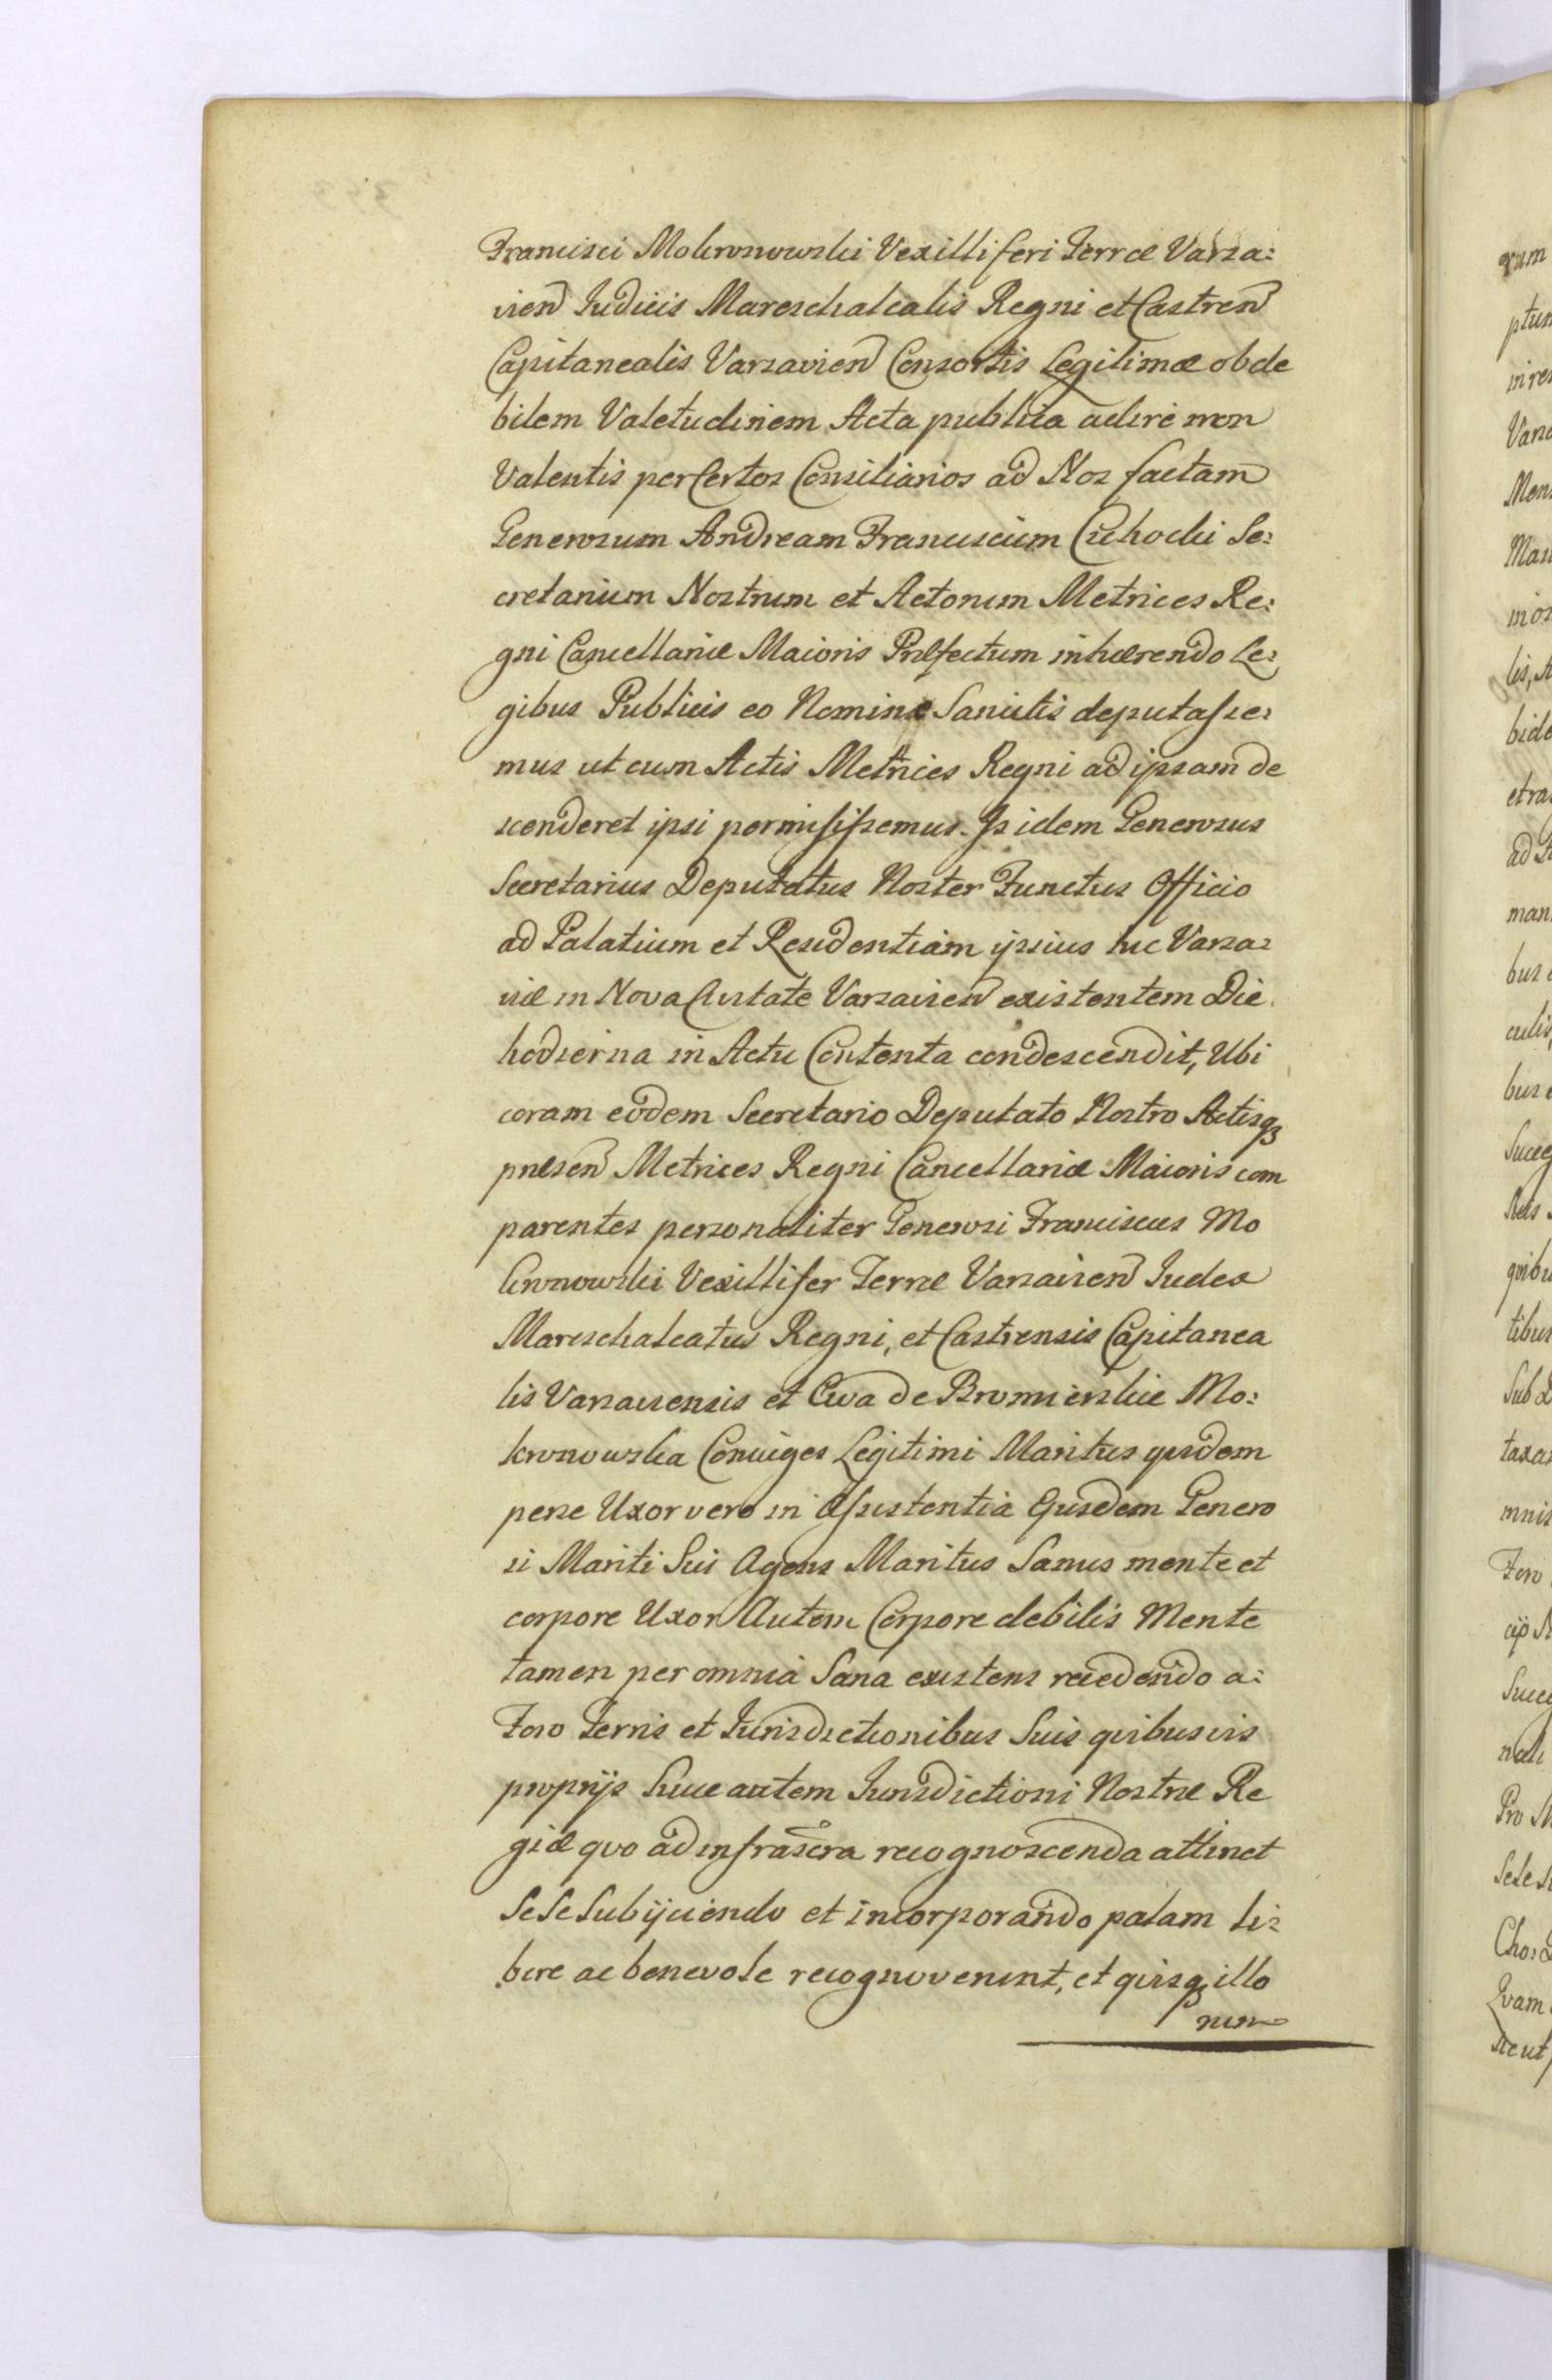 Francisci Mokronowski Vexilliferi Terræ Varsa:
vien Iudicis Mareschalcalis Regni et Castren
Capitanealis Varsavien Consortis Legitimæ ob de
bilem Valetudinem Acta publica adire non
Valentis per Certos Consiliarios ad Nos factam
Generosum Andream Franciscum Cichocki Se:
cretarium Nostrum et Actorum Metrices Re:
gni Cancellariæ Maioris Præfectum inhærendo Le:
gibus Publicis eo Nomine Sancitis deputasse:
mus ut cum Actis Metrices Regni ad ipsam de
scenderet ipsi permisissemus. Is idem Generosus
Secretarius Deputatus Noster Functus Officio
ad Palatium et Residentiam ipsius hic Varsa:
viæ in Nova Civitate Varsavien existentem Die
hodierna in Actu Contenta condescendit, Ubi
coram eodem Secretario Deputato Nostro Actisqꝫ
præsen Metrices Regni Cancellariæ Maioris com
parentes personaliter Generosi Franciscus Mo
kronowski Vexillifer Terræ Varsavien Iudex
Mareschalcatus Regni, et Castrensis Capitanea
lis Varsaviensis et Ewa de Bromierskie Mo:
kronowska Coniuges Legitimi Maritus quidem
per se Uxor vero in Assistentia Eiusdem Genero
si Mariti Sui Agens Maritus Sanus mente et
corpore Uxor Autem Corpore debilis Mente
tamen per omnia Sana existens recedendo a:
Foro Terris et Iurisdictionibus Suis quibusvis
proprijs huic autem Iurisdictioni Nostræ Re
giæ quo ad infrascra recognoscenda attinet
Se Se Subijciendo et incorporando palam li:
bere ac benevole recognoverunt, et quisqꝫ illo
rum